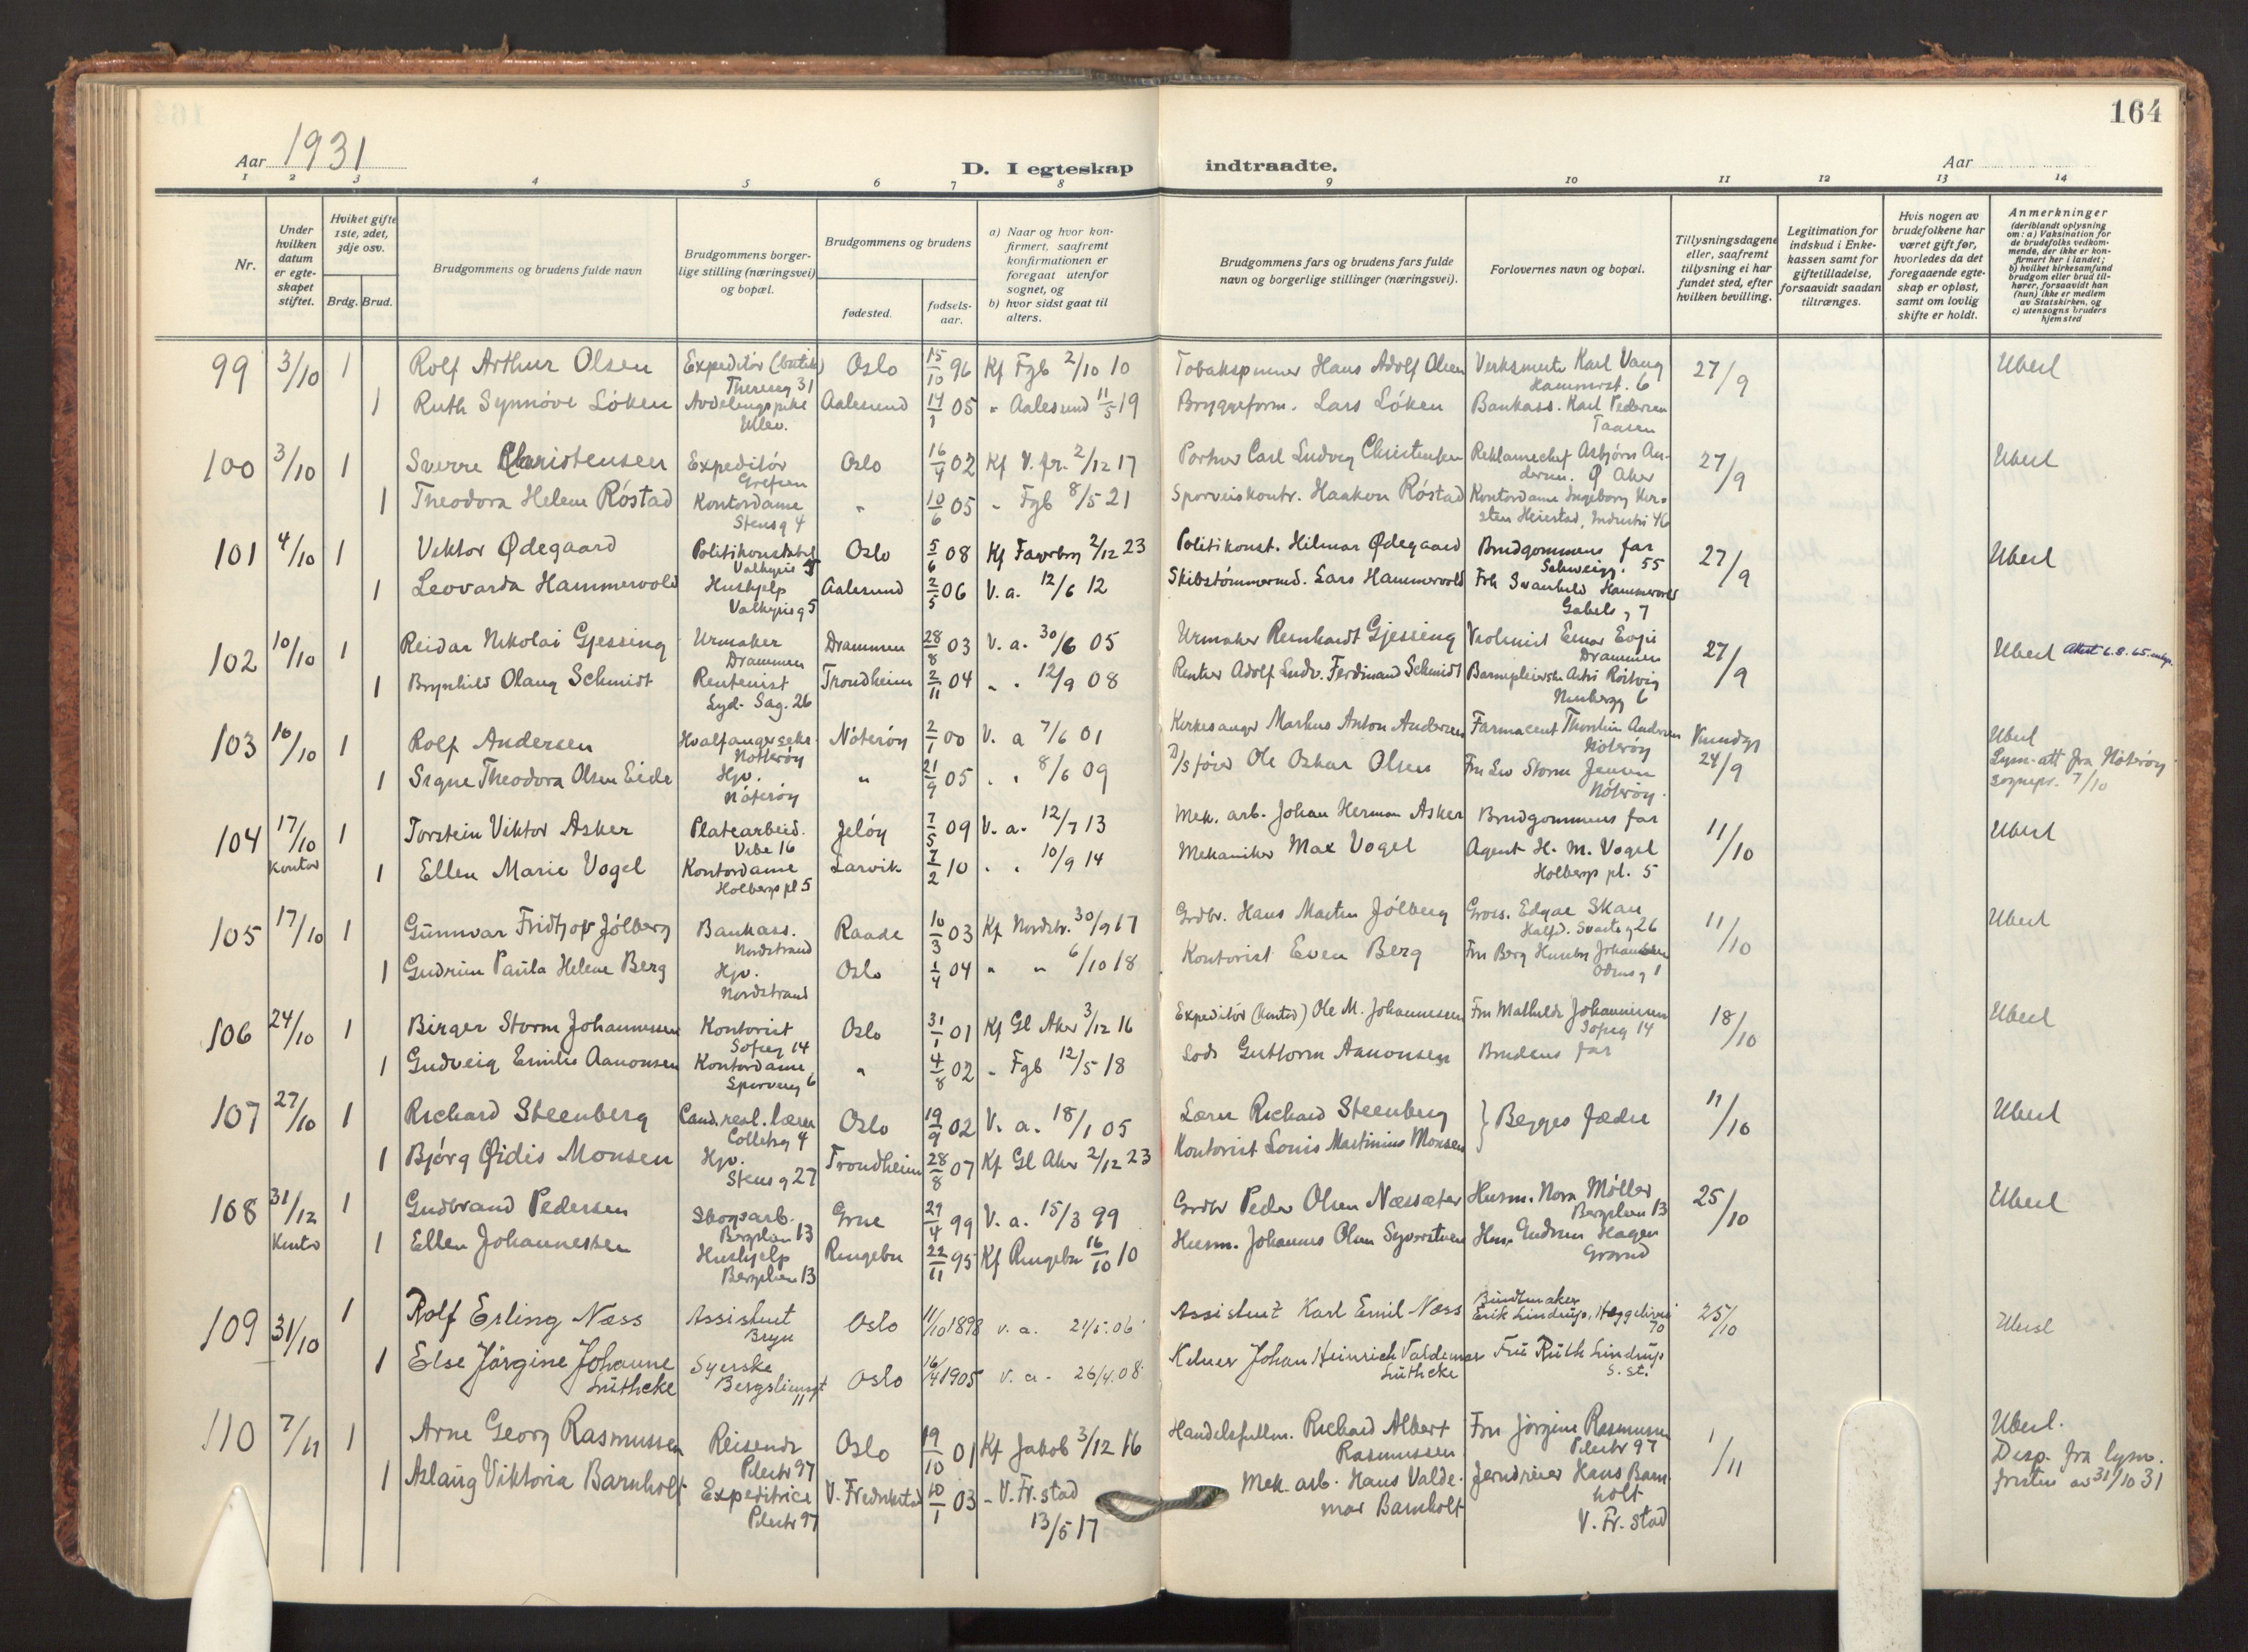 164
Aar 1931
D. I egteskap indtraadte.
Aar
1 2 3 4 5 6 7 8 9 10 11 12 13 14
Nr.
Under
hvilken
datum
er egte-
skapet
stiftet.
Hviket gifte
1ste, 2det,
3dje osv.
Brdg. Brud.
Brudgommens og brudens fulde navn
Brudgommens borger-
lige stilling (næringsvei)
og bopæl.
Brudgommens og brudens
fødested.
fødsels-
aar.
a) Naar og hvor kon-
firmert, saafremt
konfirmationen er
foregaat utenfor
sognet, og
b) hvor sidst gaat til
alters.
Brudgommens fars og brudens fars fulde
navn og borgerlige stillinger (næringsvei).
Forlovernes navn og bopæl.
Tillysningsdagene
eller, saafremt
tillysning ei har
fundet sted, efter
hvilken bevilling.
Legitimation for
indskud i Enke-
kassen samt for
giftetilladelse,
forsaavidt saadan
tiltrænges.
Hvis nogen av
brudefolkene har
været gift før,
hvorledes da det
foregaaende egte-
skap er opløst,
samt om lovlig
skifte er holdt.
Anmerkninger
(deriblandt oplysning
om: a) Vaksination for
de brudefolks vedkom-
mende, der ikke er kon-
firmert her i landet;
b) hvilket kirkesamfund
brudgom eller brud til-
hører, forsaavidt han
(hun) ikke er medlem
av Statskirken, og
c) utensogns bruders
hjemsted
99 3/10 1 Rolf Arthur Olsen Expeditör (butik) Oslo 15/10 96 Kf Fgb 2/10 10 Tobakspinner Hans Adolf Olsen Verksmester Karl Vang 27/9 Uberl
Theresesg 31 Hammerst. 6
1 Ruth Synnöve Löken Avdelingspike Aalesund 14/1 05 " Aalesund 11/5 19 Bryggeform. Lars Löken Bankass. Karl Pedersen
Ullev. Taasen
100 3/10 1 Sverre Christensen Expeditör Oslo 16/9 02 Kf V. fr. 2/12 17 Portner Carl Ludvig Christensen Reklamechef Asbjörn An- 27/9 Uberl
Grefsen dersen. Ø Aker
1 Theodora Helene Röstad Kontordame " 10/6 05 " Fgb 8/5 21 Sporveiskontr. Haakon Röstad Kontordame Ingeborg Kir-
Stensg 4 sten Heiestad, Industri 46
101 4/10 1 Viktor Ødegaard Politikonstabel Oslo 5/6 08 Kf Fagerborg 2/12 23 Politikonst. Hilmar Ødegaard Brudgommens far 27/9 Uberl
Valkyrie 5 Schweigg. 55
1 Leovarda Hammervold Hushjelp Aalesund 2/5 06 V. a. 12/6 12 Skibstömmermd. Lars Hammervold Frk Svanhild Hammervold
Valkyrieg 5 Gabelsg 7
102 10/10 1 Reidar Nikolai Gjessing Urmaker Drammen 28/8 03 V. a. 30/6 05 Urmaker Reinhardt Gjessing Violinist Einar Evju 27/9 Uberl Attest 6.8.65
Drammen Drammen
1 Brynhild Olaug Schmidt Rentenist Trondheim 2/11 04 " " 12/9 08 Rentier Adolf Ludv. Ferdinand Schmidt Barnepleierske Röstvig
Eyd. Sag. 26 6
103 16/10 1 Rolf Andersen Hvalfangersekr. Nöteröy 2/1 00 V. a 7/6 01 Kirkesanger Markus Anton Andersen Farmacent Thorstein Andersen Kundgj Uberl
Nötteröy Nöteröy 24/9 Lysn. att fra Nöteröy
1 Signe Theodora Olsen Eide Hjv. " 21/9 05 " " 8/6 09 D/S förer Ole Oskar Olsen Fru Liv Storm Jensen sognepr. 7/10
Nöteröy Nöteröy.
104 17/10 1 Torstein Viktor Asker Platearbeid. Jelöy 7/5 09 V. a. 12/7 13 Mek. arb. Johan Herman Asker Brudgommens far 11/10 Uberl
Kontor Vibe 16
1 Ellen Marie Vogel Kontordame Larvik 7/2 10 " " 10/9 14 Mekaniker Max Vogel Agent H. M. Vogel
Holbergs pl 5 Holbergs pl. 5
105 17/10 1 Gunnvar Fridtjof Jölberg Bankass. Raade 10/3 03 Kf Nordstr. 30/9 17 Grdbr. Hans Martin Jölberg Gros. Edgar Skau 11/10 Uberl
Nordstrand Halfd. Svartes g 26
1 Gudrun Paula Helene Berg Hjv. Oslo 1/4 04 " " 6/10 18 Kontorist Even Berg Fru Berg Johansen
Nordstrand Odinsg 1
106 24/10 1 Birger Storm Johannessen Kontorist Oslo 31/1 01 Kf Gl Aker 3/12 16 Expeditör (kontor) Ole M. Johannessen Fru Mathilde Johannessen 18/10 Uberl
Sofieg 14 Sofieg 14
1 Gudveig Emilie Aanonsen Kontordame " 4/8 02 " Fgb 12/5 18 Lods Guttorm Aanonsen Brudens far
Sporveisg 6
107 27/10 1 Richard Steenberg Cand. real. lærer Oslo 19/9 02 V. a. 18/1 05 Lærer Richard Steenberg } Begges fædre 11/10 Uberl
Colletsg 4
1 Björg Ødis Monsen Hjv. Trondheim 28/8 07 Kf Gl Aker 2/12 23 Kontorist Louis Martinius Monsen
Stensg 27
108 31/12 1 Gudbrand Pedersen Skogsarb. Grue 29/4 99 V. a. 15/3 99 Grdbr Peder Olsen Næssæter Husm. Nora Møller 25/10 Uberl
Kontor Bergslien 13 Bergslien 13
1 Ellen Johannessen Hushjelp Ringebu 22/11 95 Kf Ringebu 16/10 10 Husm. Johannes Olsen Syverstuen Husm Gudrun Hagen
Bergslien 13 Grorud
109 31/10 1 Rolf Erling Næss Assistent Oslo 11/10 1898 v. a. 21/5.06 Assistent Karl Emil Næss Buntmaker 25/10 Uberl
Bryn Erik Lindrup, Heggeliveien 70
1 Else Jörgine Johanne Syerske Oslo 16/4 1905 v. a. 26/4.08 Kelner Johan Heinrich Valdemar Fru Ruth Lindrup
Lüthcke Bergsliensgt 11 Lüthcke s. st.
110 7/11 1 Arne Georg Rasmussen Reisende Oslo 19/10 01 Kf Jakob 3/12 16 Handelsfullm. Richard Albert Fru Jörgine Rasmussen 1/11 Uberl.
Pilestr 97 Rasmussen Pilestr 97 Disp. fra lysn.
1 Aslaug Viktoria Barnholt Expeditrice V. Fredrikstad 10/1 03 " V. Fr. stad Mek. arb. Hans Valde- Jerndreier Hans Barn- fristen av 31/10 31
Pilestr 97 13/5 17 mar Barnholt holt
V. Fr. stad